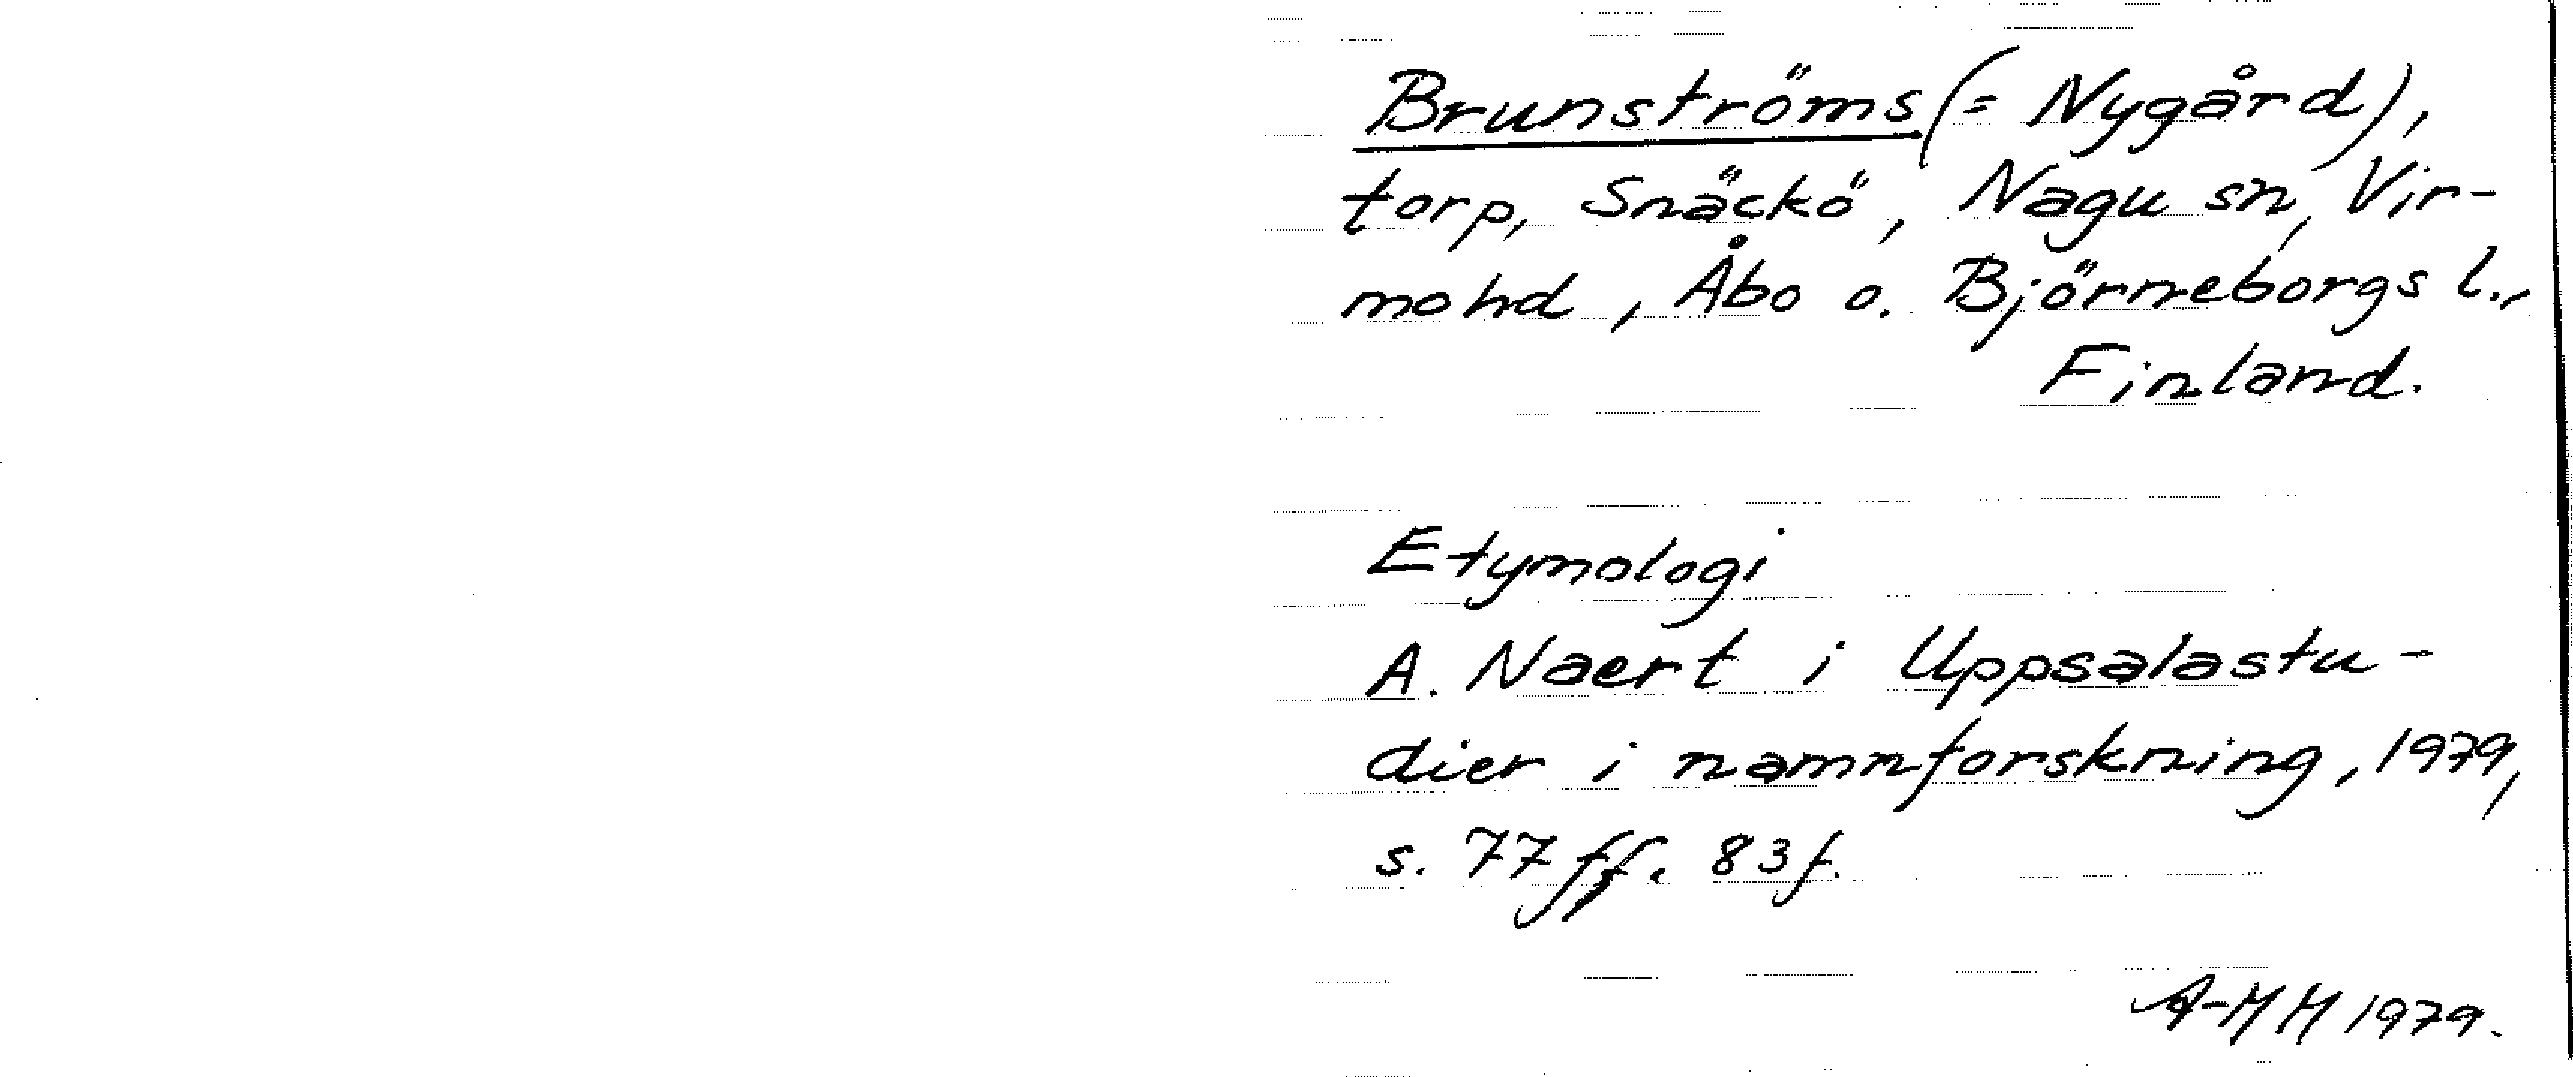 Brunströms (= Nygård),
torp, Snäckö, Nagu sn, Vir-
mo hd, Åbo o. Björneborgs l.,
Finland.
Etymologi
A. Naert i Uppsalastu-
dier i namnforskning, 1979,
s. 77 ff. 83 f.
A-MM 1979.